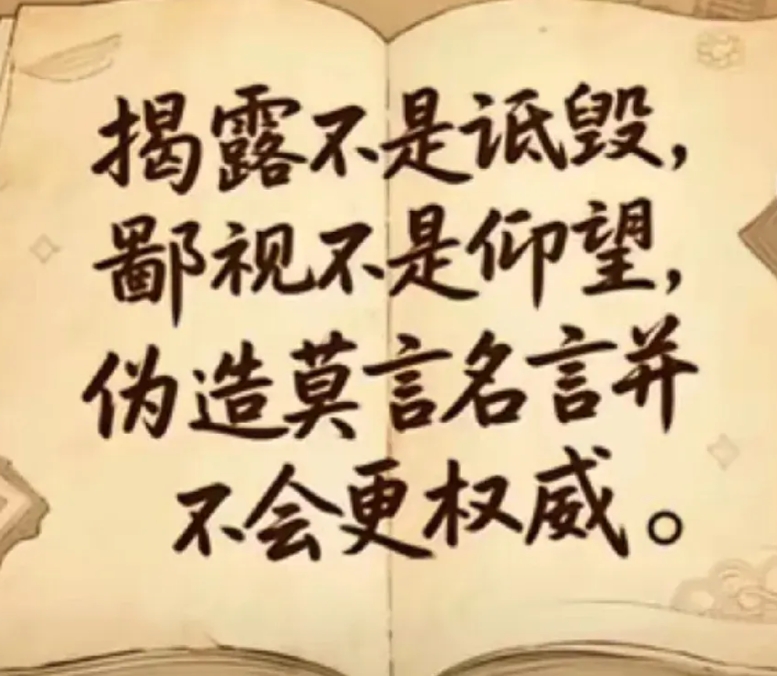 揭露不是诋毁，
鄙视不是仰望，
伪造莫言名言并
不会更权威。